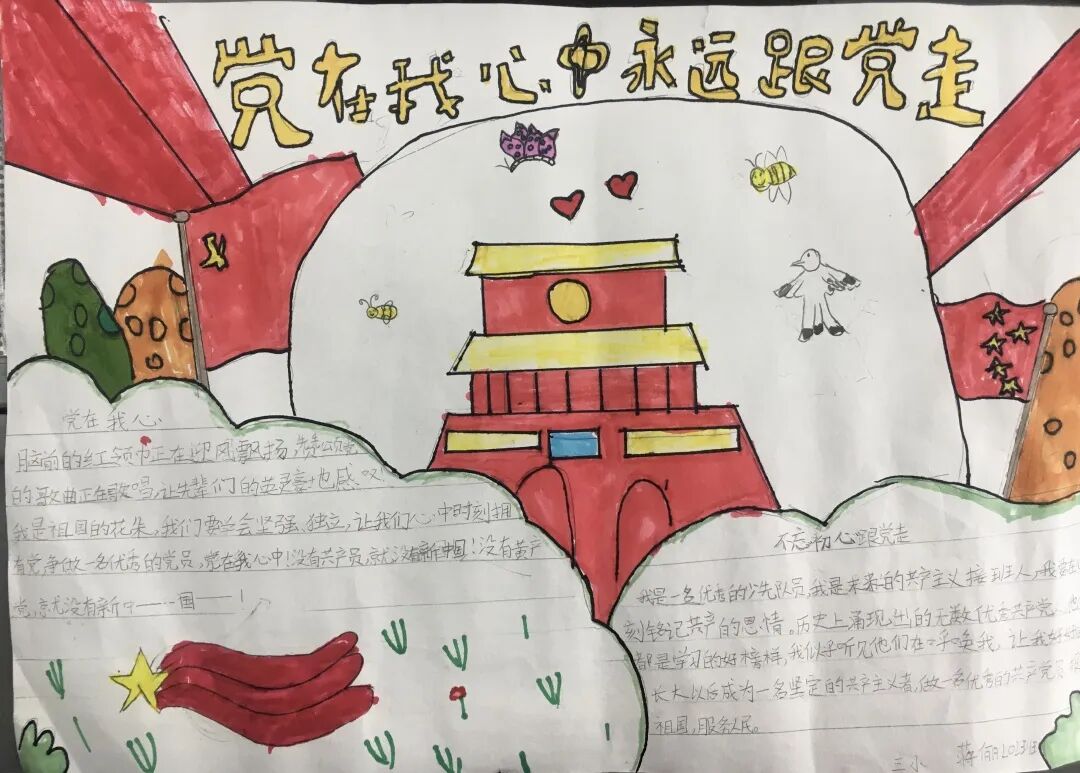 党在我心中永远跟党走
党在我心
胸前的红领巾正在迎风飘扬,赞颂党
的歌曲正在歌唱,让先辈们的英灵也感叹
我是祖国的花朵,我们要学会坚强、独立,让我们心中时刻拥
有党,争做一名优秀的党员,党在我心中!没有共产员,就没有新中国!没有共产
党,就没有新中——国——!
不忘初心跟党走
我是一名优秀的少先队员,我是未来的共产主义接班人,我要
刻铭记共产的恩情。历史上涌现出的无数优秀共产党
都是学习的好榜样,我似乎听见他们在呼唤我,让我好好
长大以后成为一名坚定的共产主义者,做一名优秀的共产党员
祖国,服务人民。
三小 蒋俪